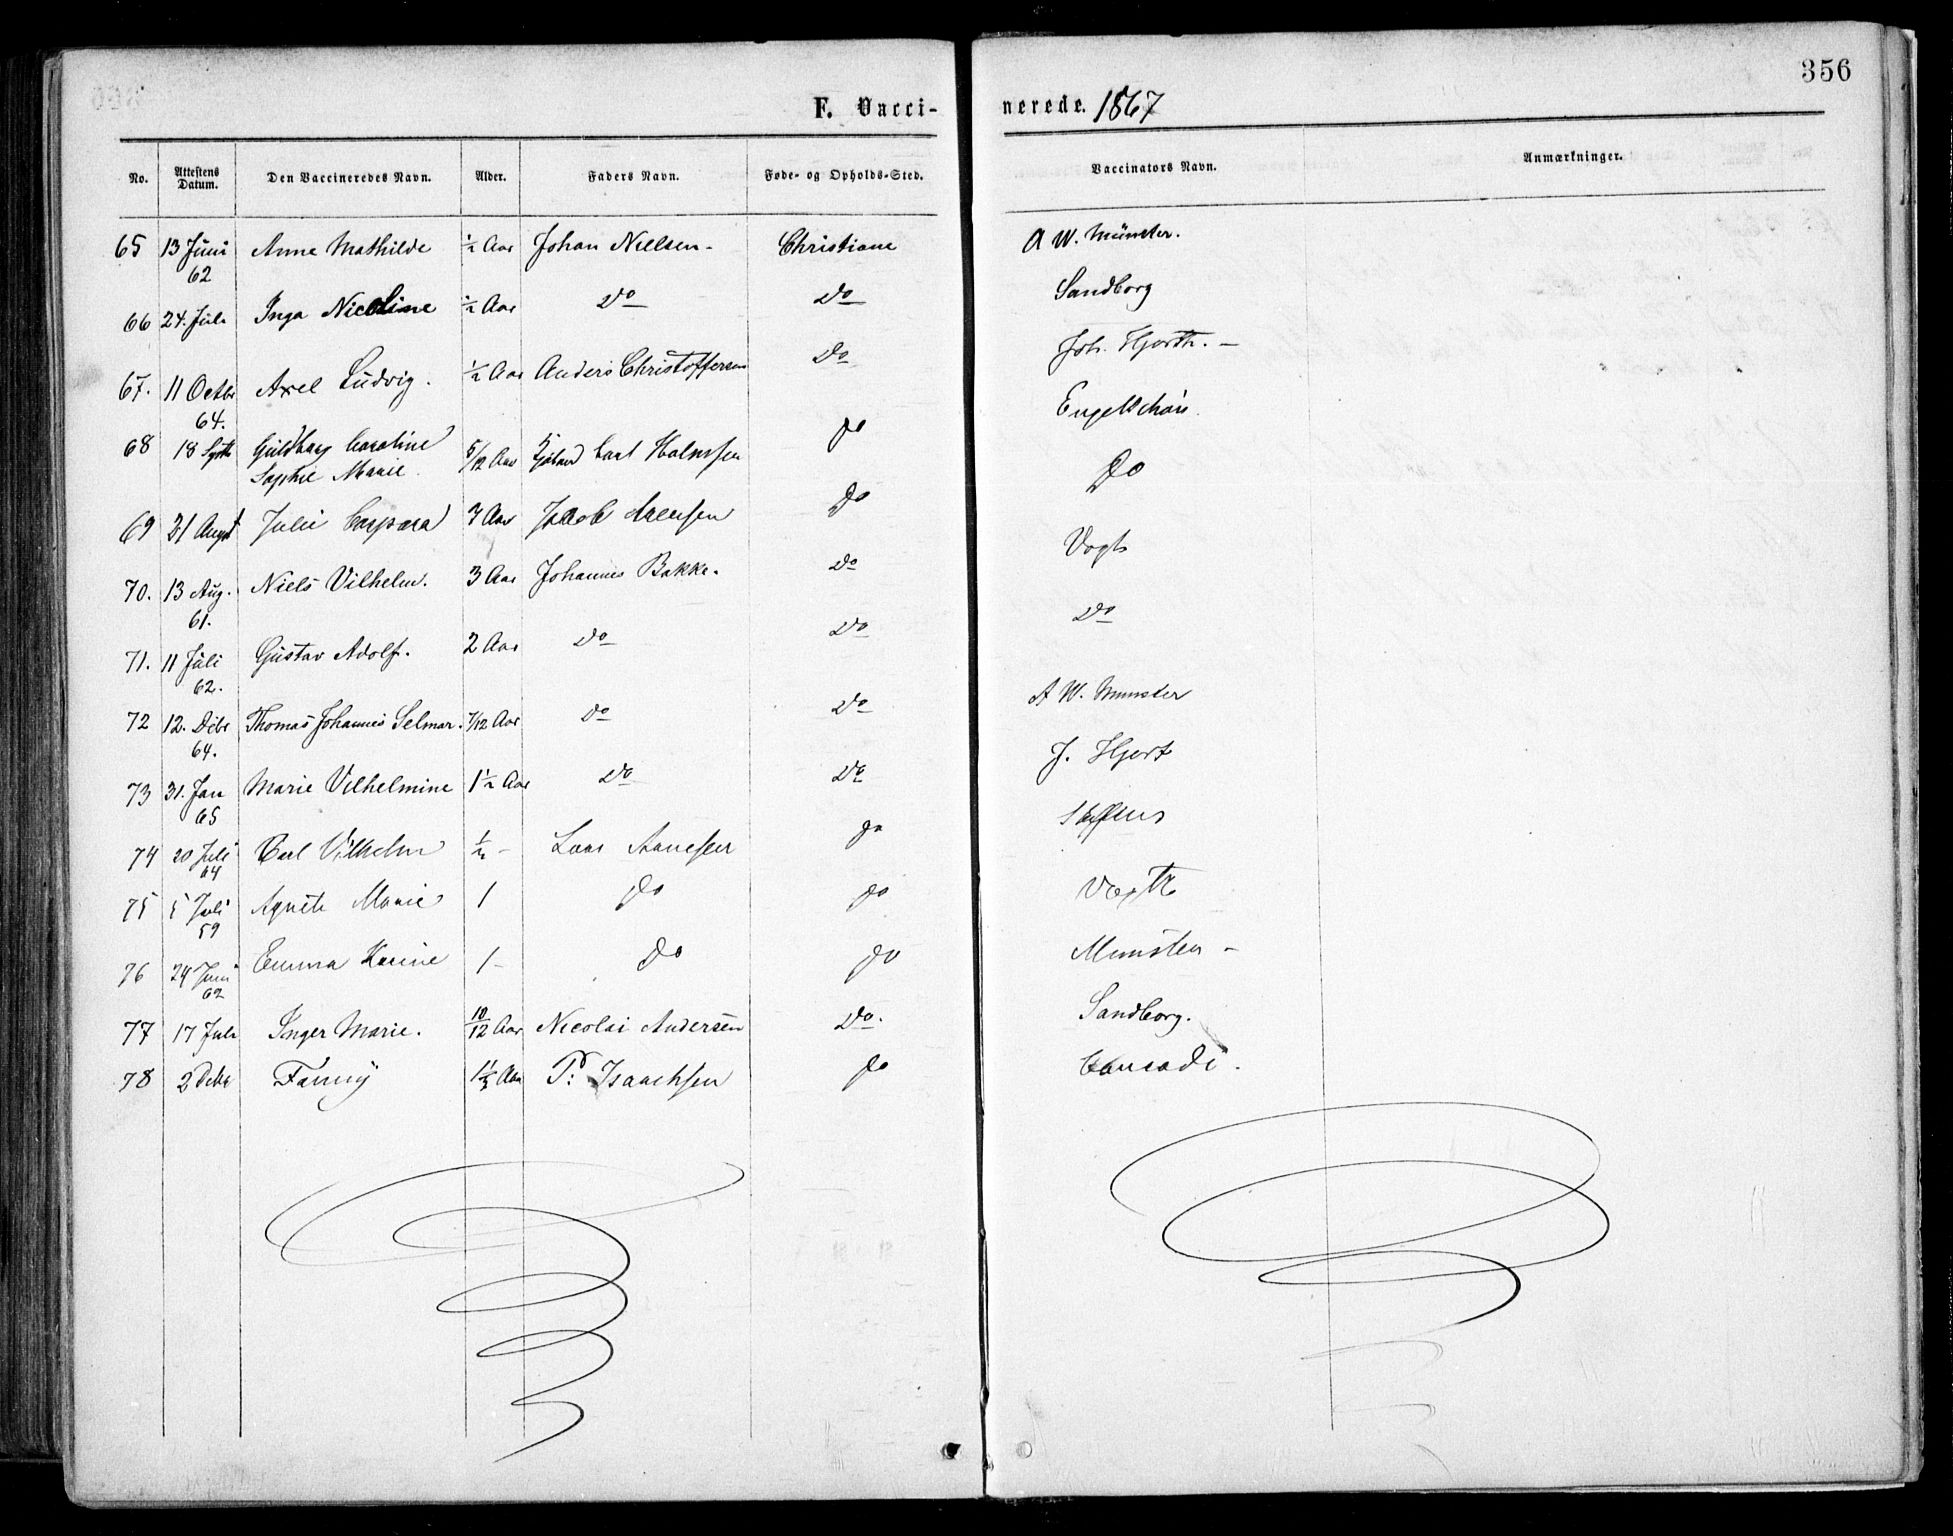 356
F. Vacci- nerede. 1867
No. Attestens Datum. Den Vaccineredes Navn. Alder. Faders Navn. Føde- og Opholds-Sted. Vaccinators Navn. Anmærkninger.
65 13 Juni 62 Anne Mathilde ½ Aar Johan Nielsen - Christiane A W. Münster.
66 24. Juli Inga Nicoline ½ Aar Do Do Sandborg
67. 11 Octbr 64. Axel Ludvig. ½ Aar Anders Christoffersen Do Joh. Hjorth. -
68 18 Septb Caroline Sophie Marie. 5/12 Aar Carl Holmsen Do
69 21 August Julie Caspara 7 Aar Jacob Do Do
70. 13 Aug. 61. Niels Vilhelm. 3 Aar Johannes Bakke. Do Vogt
71. 11 Juli 62. Gustav Adolf. 2 Aar Do Do Do
72 12. Debr 64. Thomas Johannes Selmar. 7/12 Aar Do Do A W. Munster
73 31. Jan 65 Marie Vilhelmine 1½ Aar Do Do J. Hjort
74 20 Juli 64 Carl Vilhelm ½ - Lars Aanesen Do
75 5 Juli 59 Agnete Marie 1 Do Do Vogt
76 24 Juni 62 Emma Karine 1 - Do Do Munster -
77 17 Juli Inger Marie. 10/12 Aar Nicolai Andersen Do. Sandborg.
78 2 Debr Fanny 1½ Aar P: Isaachsen Do Conradi.